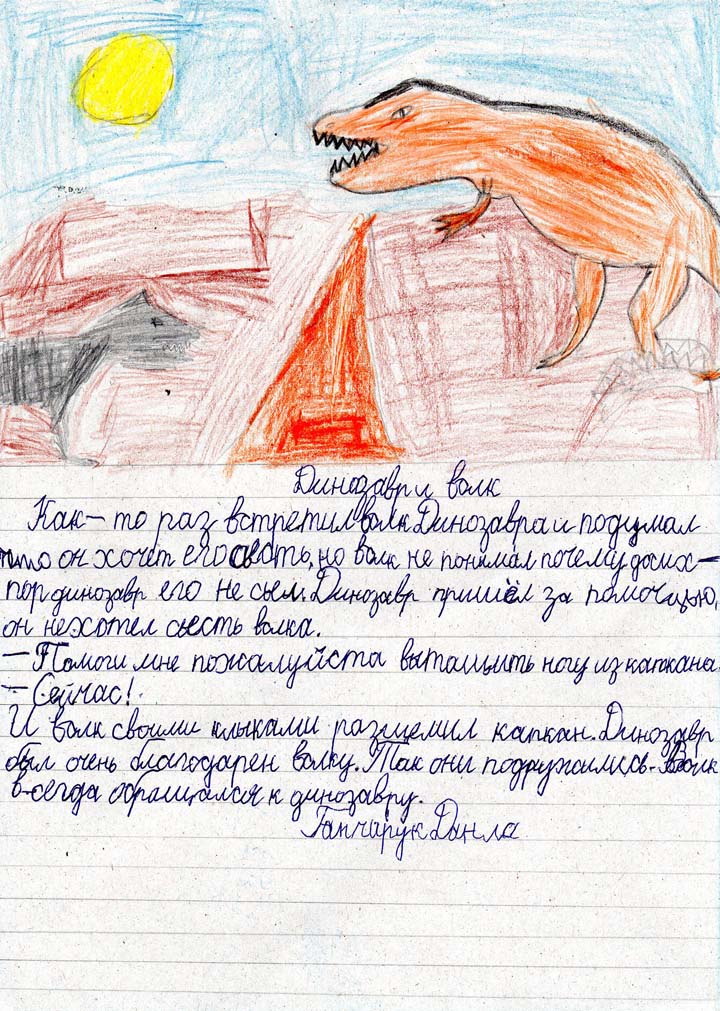 Динозавр и волк
Как-то раз встретил волк Динозавра и подумал
что он хочет его съесть, но волк не понимал почему до сих-
пор динозавр его не съел. Динозавр пришёл за помощью,
он нехотел съесть волка.
- Помоги мне пожалуйста вытащить ногу из капкана.
- Сейчас!
И волк своими клыками разщемил капкан. Динозавр
был очень благодарен волку. Так они подружились. Волк
всегда обращался к динозавру.
Гапчарук Данла